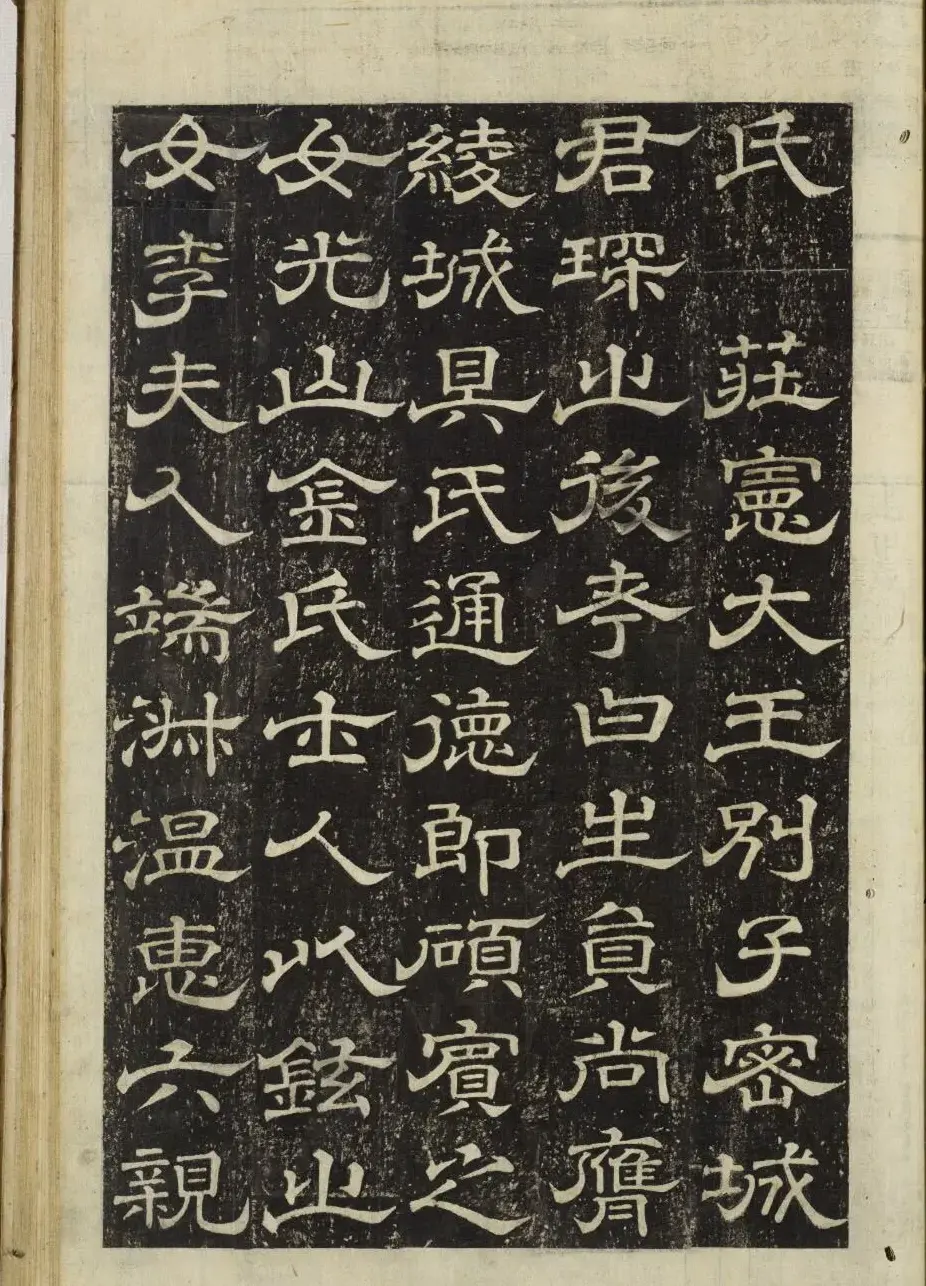 氏　莊憲大王別子密城
君琛之後考曰生員尚膺
綾城具氏通德郎碩賓之
女光山金氏士人以鉉之
女李夫人端淑温惠六親